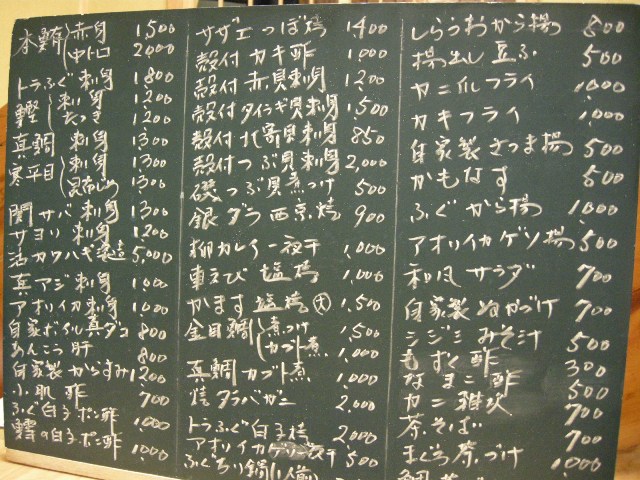 本鮪 赤身 1,500
中トロ 2,000
トラふぐ刺身 1,800
鰹 刺身 1,200
たたき 1,200
真鯛 刺身 1,300
寒平目 刺身 1,300
昆布じめ 1,300
関サバ刺身 1,300
サヨリ刺身 1,200
活カワハギ姿造 5,000
真アジ刺身 1,000
アオリイカ刺身 1,000
自家ボイル真ダコ 800
あんこう肝 800
自家製からすみ 1,200
小肌酢 700
ふぐ白子ポン酢 1,000
鱈の白子ポン酢 1,000
サザエつぼ焼 1400
殻付カキ酢 1,000
殻付赤貝刺身 1,200
殻付タイラギ貝刺身 1,500
殻付北寄貝刺身 850
殻付つぶ貝刺身 2,000
磯つぶ貝煮つけ 500
銀ダラ西京焼 900
柳カレイ一夜干 1,000
車えび塩焼 1,000
かます塩焼 大 1,500
金目鯛 煮つけ 1,500
カブト煮 1,000
真鯛カブト煮 1,000
焼タラバガニ 2,000
トラふぐ白子焼 2,000
アオリイカゲソ一夜干 500
ふぐちり鍋(1人前)
しらうおから揚 800
揚出し豆ふ 500
カニ爪フライ 1,000
カキフライ 1,000
自家製さつま揚 500
かもなす 500
ふぐから揚 1,000
アオリイカゲソ揚 500
和風サラダ 700
自家製ぬかづけ 700
シジミみそ汁 500
もずく酢 300
なまこ酢 500
カニ雑炊 700
茶そば 700
まぐろ茶づけ 1,000
鯛茶